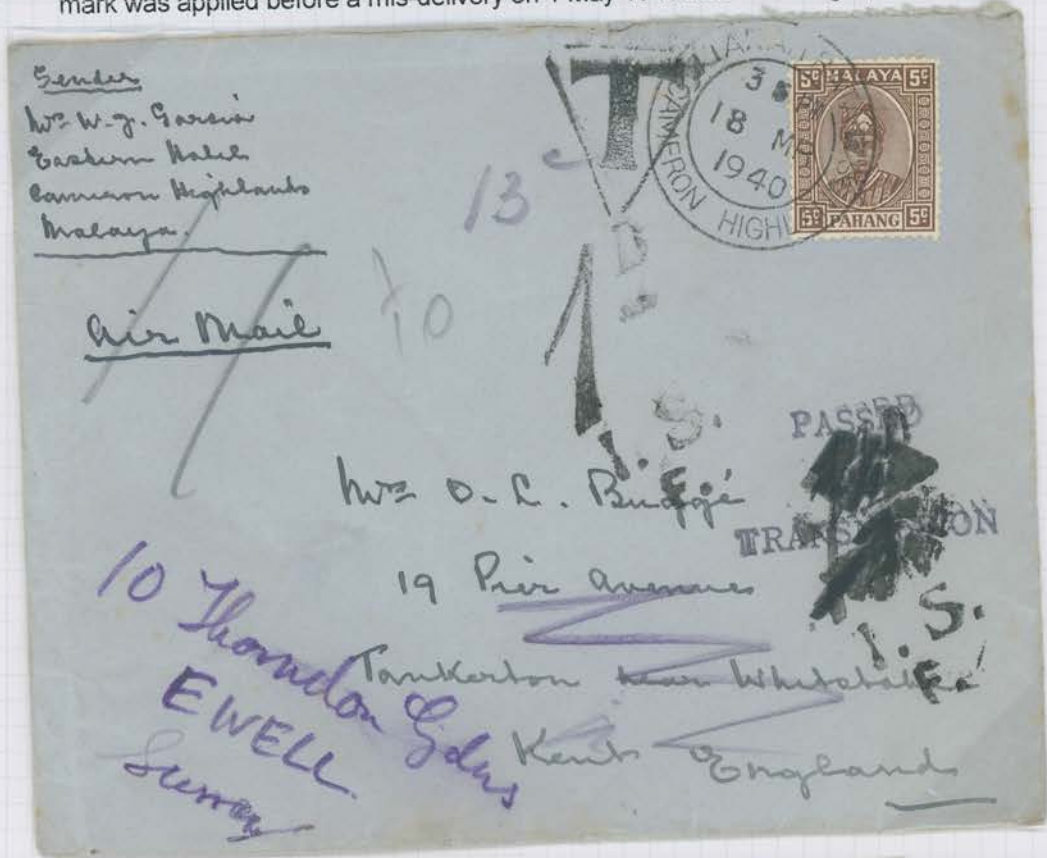 mark was applied before a mis-delivery on 4 May
Sender
Mrs W. J. Garcia
Eastern Hotel
Cameron Highlands
Malaya.
Air Mail
13 c
T
10
1
I.S.
F.
3 PM
18 MR
1940
CAMERON HIGHL
5c MALAYA 5c
5c PAHANG 5c
PASSED
TRANS ION
I.S.
F.
Mrs D. L.
19 Pier Avenue
Tankerton near Whitstable
Kent England
10 Thorndon Gdns
EWELL
Surrey